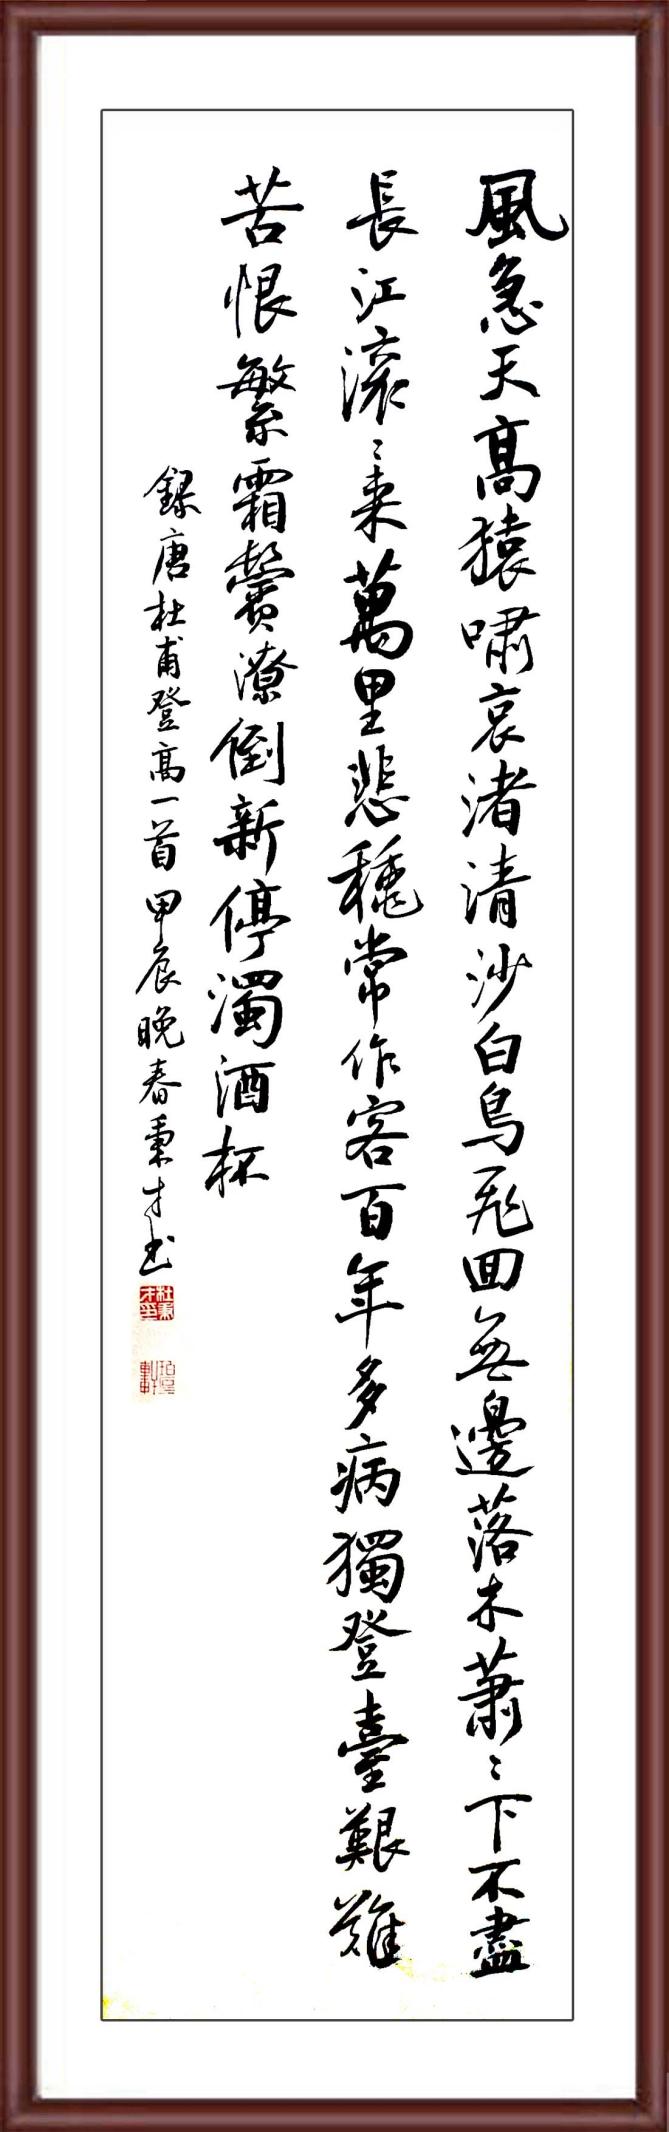 風急天高猿嘯哀渚清沙白鳥飛回無邊落木蕭〻下不盡
長江滚〻来萬里悲穐常作客百年多病獨登臺艱難
苦恨繁霜鬢潦倒新停濁酒杯
録唐杜甫登高一首甲辰晚春秉才书
杜秉才印